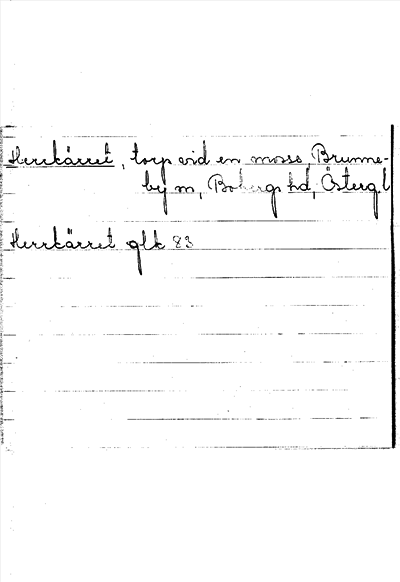 Herrkärret, torp vid en mosse, Brunne-
by sn, Bobergs hd, Östergl
Herrkärret glk 83